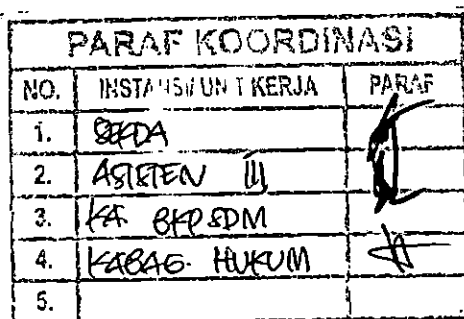 PARAF KOORDINASI
NO. INSTANSI/UNIT KERJA PARAF
1. SEKDA
2. ASISTEN III
3. KA. BKPSDM
4. KABAG. HUKUM
5.